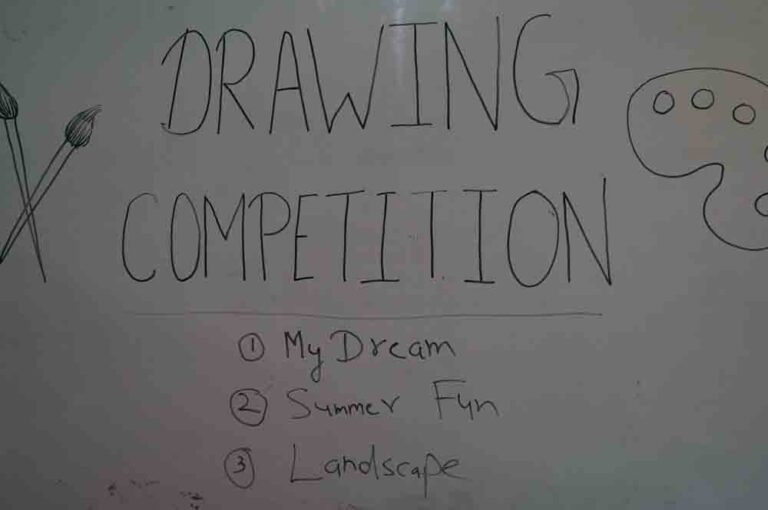 DRAWING
COMPETITION
① My Dream
② Summer Fun
③ Landscape